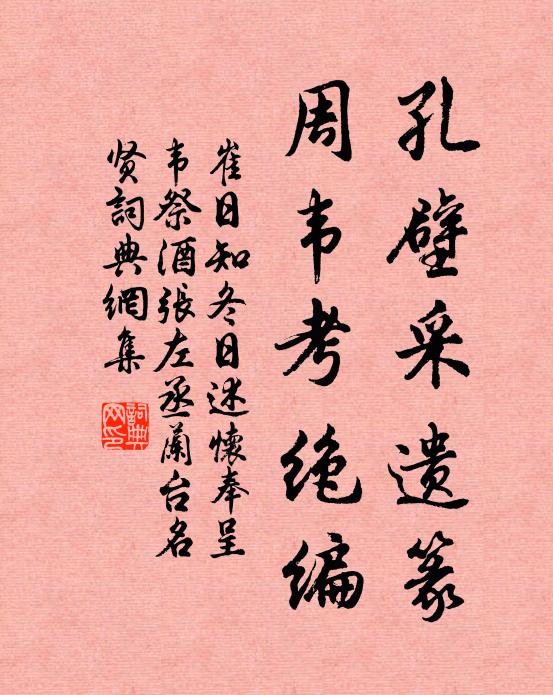 孔壁采遗篆
周韦考绝编
崔日知冬日述懷奉呈
韦祭酒張左丞蘭台名
贤詞典網集
詞典
网印